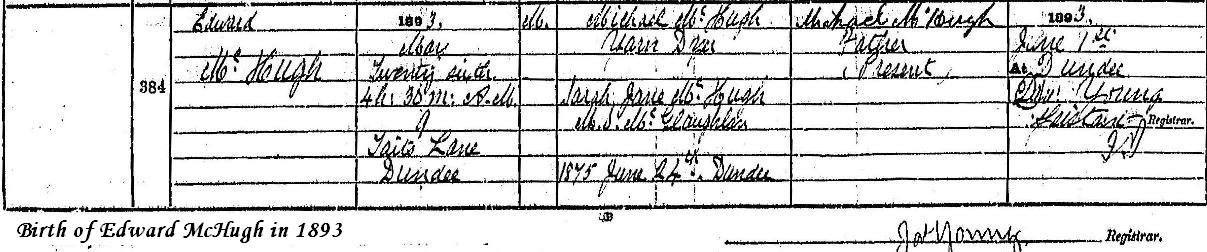 384
Edward
Mc Hugh
1893.
May
Twenty sixth
4h. 30m. A.M.
9
Taits Lane
Dundee
M.
Michael Mc Hugh
Yarn Dyer
Sarah Jane Mc Hugh
M.S. Mc Glaughlin
1875 June 24th Dundee
Michael Mc Hugh
Father
(Present)
1893.
June 1st
At Dundee
Young
Registrar.
Birth of Edward McHugh in 1893
Jas Young
Registrar.